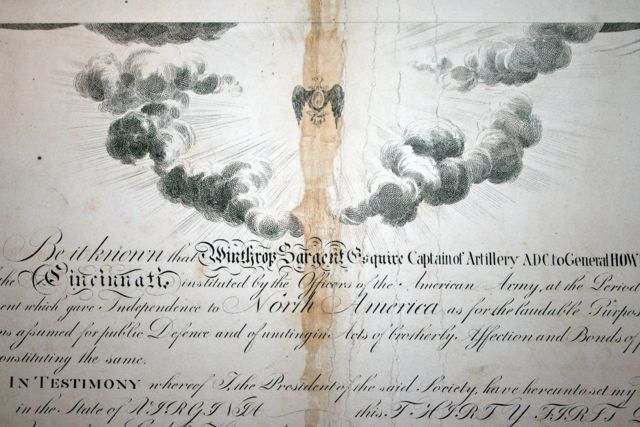 Be it known that Winthrop Sargent Esquire Captain of Artillery ADC to General HOW
the Cincinnati, instituted by the Officers of the American Army, at the Period
ent which gave Independence to North America as for the laudable Purpos
us assumed for public Defence and of uniting in Acts of brotherly Affection and Bonds of
onstituting the same.
IN TESTIMONY whereof I, the President of the said Society, have hereunto set my
in the State of VIRGINIA this THIRTY FIRST